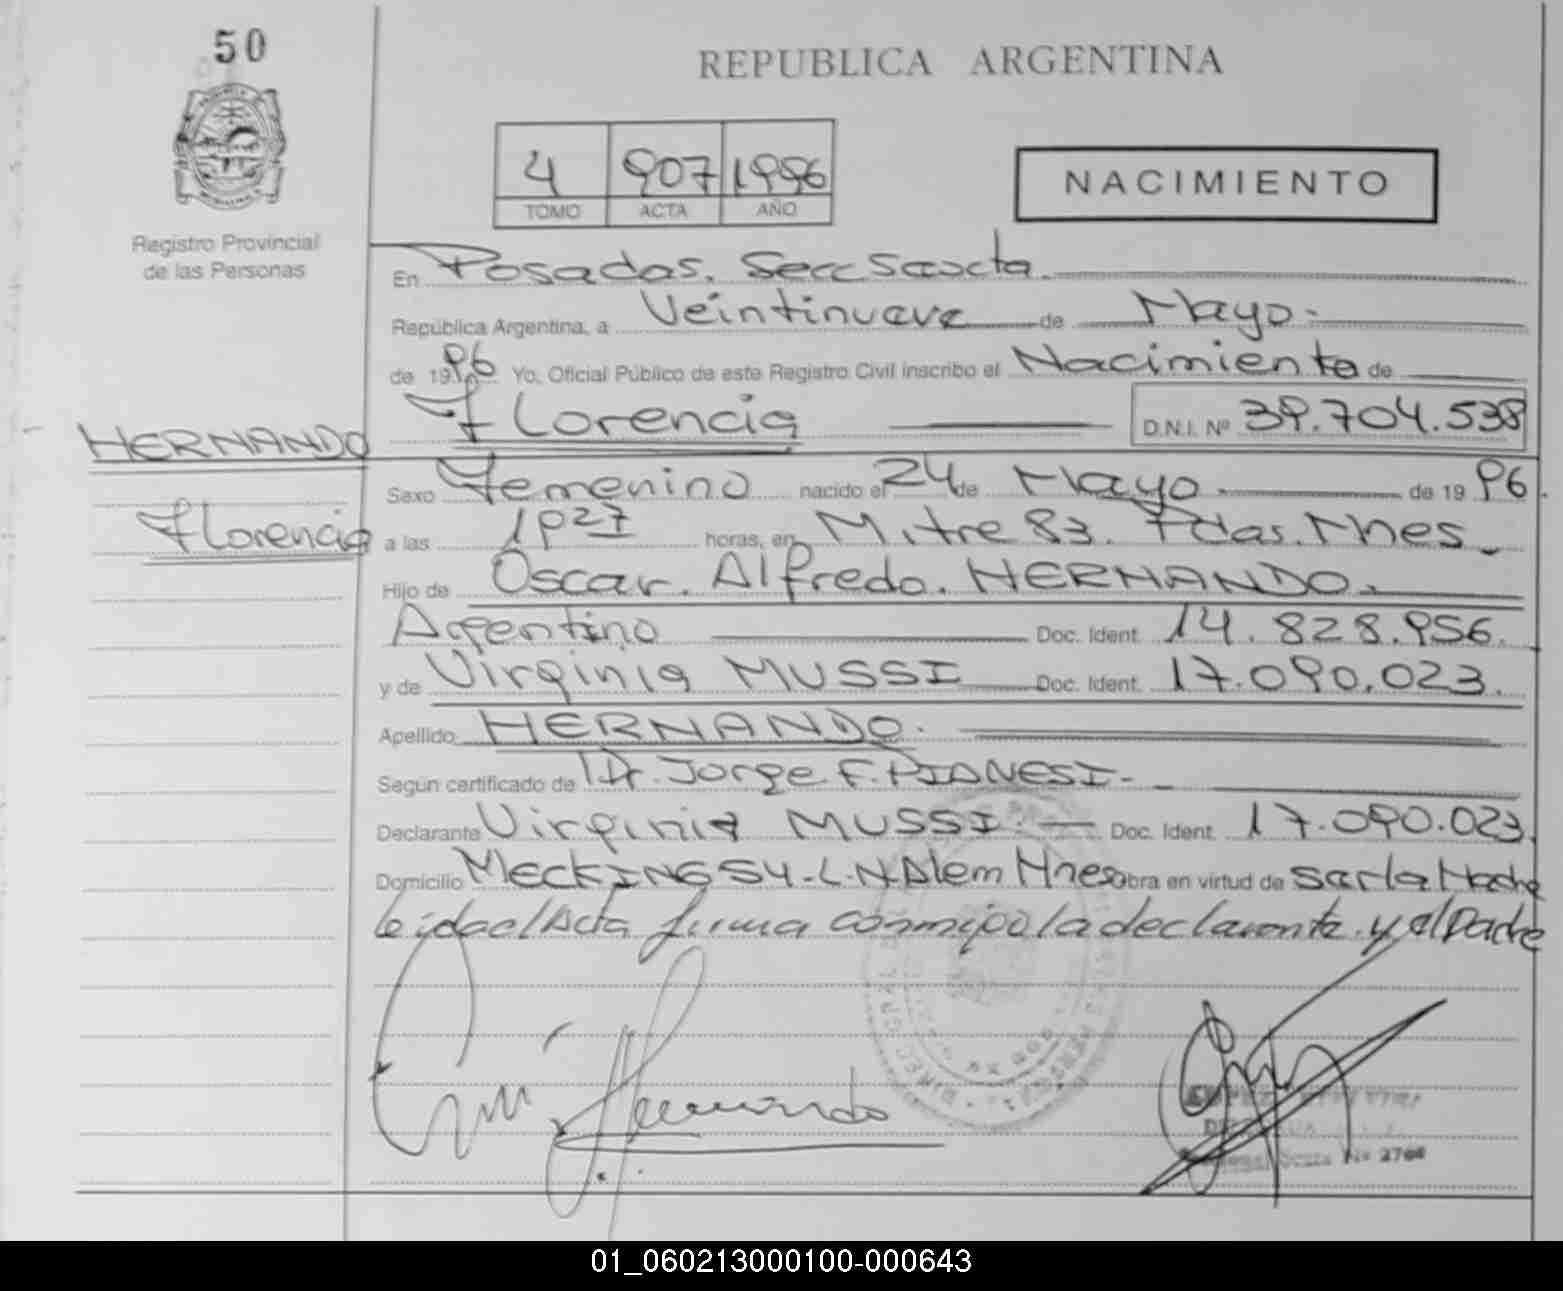 50
REPUBLICA ARGENTINA
4 907 1996
TOMO ACTA AÑO
NACIMIENTO
Registro Provincial
de las Personas
En Posadas. Secc Sexcta
República Argentina, a Veintinueve de Mayo.
de 1996 Yo, Oficial Público de este Registro Civil inscribo el Nacimiento de
Florencia D.N.I. Nº 39.704.538
HERNANDO
Florencia
Sexo Femenino nacido el 24 de Mayo de 1996
a las 1927 horas, en Mitre 83. Pdas. Mnes
Hijo de Oscar. Alfredo. HERNANDO.
Argentino Doc. Ident. 14.828.956.
y de Virginia MUSSI Doc. Ident. 17.090.023.
Apellido HERNANDO.
Según certificado de Dr. Jorge F. PIANESI-
Declarante Virginia MUSSI - Doc. Ident. 17.090.023.
Domicilio MeckING 54-L.N.Alem Mnes obra en virtud de ser la Madre
leida el Acta firma conmigo la declarante y el Padre
Hernando
Nº 2704
01_060213000100-000643